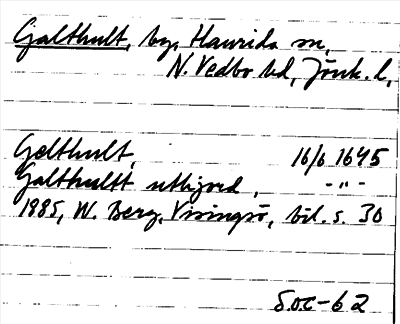 Galthult, by, Haurida sn,
N. Vedbo hd, Jönk. l,
Galthult, 16/6 1645
Galthultt utbijord, -"-
1885, W. Berg, Visingsö, bil. s. 30
Soc-62